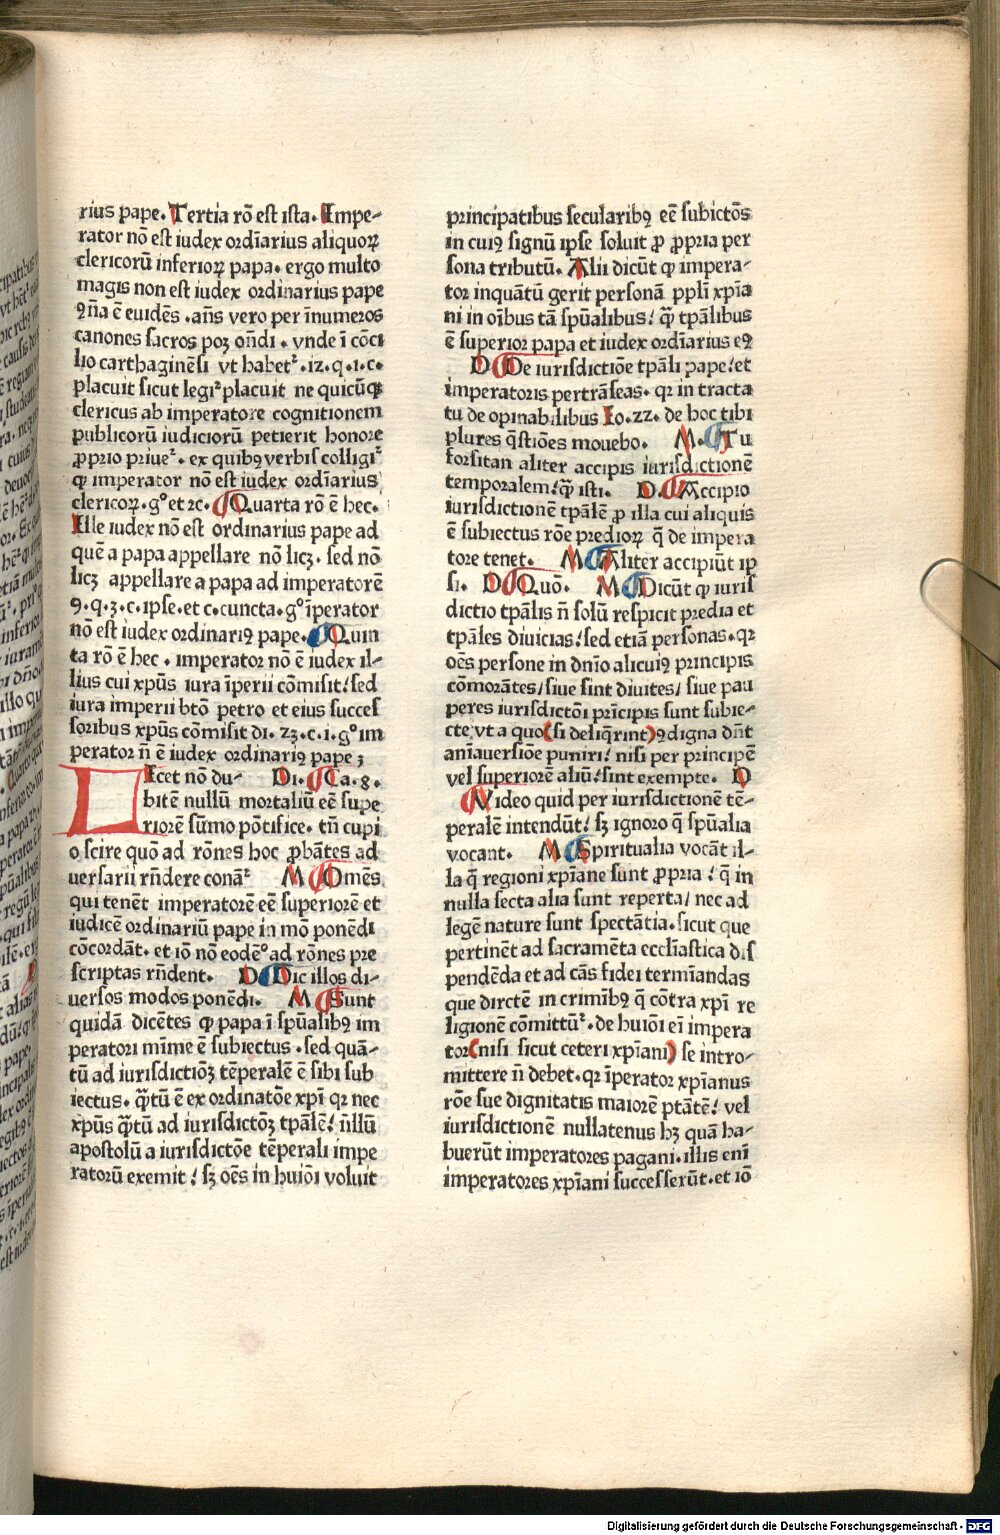 rius pape. Tertia rō est ista. Impe-
rator nō est iudex ordīarius aliquoꝝ
clericorū inferioꝝ papa. ergo multo
magis non est iudex ordinarius pape
ꝯn̄a ē euidēs .an̄s vero per īnumeros
canones sacros poꝫ on̄di. vnde ī cōci
lio carthaginēsi vt habetᷣ .12.q.1.c.
placuit sicut legiᷣ placuit ne quicūqꝫ
clericus ab imperatore cognitionem
publicorū iudiciorū petierit honore
ꝓprio priueᷣ. ex quibꝯ verbis colligiᷣ
ꝙ imperator nō est iudex ordīarius
clericoꝝ.gᵒ et ⁊c. Quarta rō ē hec.
Ille iudex nō est ordinarius pape ad
quē a papa appellare nō licꝫ. sed nō
licꝫ appellare a papa ad imperatorē
9.q.3.c.ipse.et c.cuncta.gᵒ īperator
nō est iudex ordinariꝯ pape. Quin
ta rō ē hec . imperator nō ē iudex il-
lius cui xp̄us iura īperii cōmisit: sed
iura imperii bt̄o petro et eius succes
soribus xp̄us cōmisit di. 23.c.1.gᵒ im
perator n̄ ē iudex ordinariꝯ pape ꝫ
Licet nō du- Di. Ca.8.
bitē nullū mortaliū eē supe
riorē sūmo pōtifice. tn̄ cupi
o scire quō ad rōnes hoc ꝓbātes ad
uersarii rn̄dere conāᷣ M Omēs
qui tenēt imperatorē eē superiorē et
iudicē ordinariū pape in mō ponēdi
cōcordāt. et iō nō eodēᵒ ad rōnes pre
scriptas rn̄dent. D Dic illos di-
uersos modos ponēdi. M Sunt
quidā dicētes ꝙ papa ī sp̄ualibꝯ im
peratori mīme ē subiectus .sed quā-
tū ad iurisdictiōꝫ tēperalē ē sibi sub
iectus. qͣtū ē ex ordinatōe xp̄i qꝛ nec
xp̄us qͣtū ad iurisdictōꝫ tp̄alē: n̄llū
apostolū a iurisdictōe tēperali impe
ratorū exemit: sꝫ oēs in huiōi voluit
principatibus secularibꝯ eē subictōs
in cuiꝯ signū ipse soluit ꝓ ꝓpria per
sona tributū. Alii dicūt ꝙ impera-
tor inquātū gerit personā ppl̄i xp̄ia
ni in oībus tā sp̄ualibus: qͣ tp̄alibus
ē superior papa et iudex ordīarius eꝯ
D De iurisdictiōe tp̄ali pape: et
imperatoris pertrāseas. qꝛ in tracta
tu de opinabilibus Io.22. de hoc tibi
plures q̄stiōes mouebo. M. Tu
forsitan aliter accipis iurisdictionē
temporalem: qͣ isti. D. Accipio
iurisdictionē tp̄alē ꝓ illa cui aliquis
ē subiectus rōe predioꝝ q̄ de impera
tore tenet. M Aliter accipiūt ip
si. D Quō. M Dicūt ꝙ iuris
dictio tp̄alis n̄ solū respicit predia et
tp̄ales diuicias: sed etiā personas. qꝛ
oēs persone in dn̄io alicuiꝯ principis
cōmorātes/ siue sint diuites/ siue pau
peres iurisdictōi prīcipis sunt subie-
cte: vt a quo (si deliq̄rint) ꝯdigna dn̄t
anīauersiōe puniri: nisi per principē
vel superiorē aliū: sint exempte. D
Video quid per iurisdictionē tē-
peralē intendūt: sꝫ ignoro q̄ sp̄ualia
vocant. M Spiritualia vocāt il-
la q̄ regioni xp̄iane sunt ꝓpria: q̄ in
nulla secta alia sunt reperta/ nec ad
legē nature sunt spectātia. sicut que
pertinēt ad sacramēta eccl̄iastica dis
pendēda et ad cās fidei termīandas
que dirctē in crimībꝯ q̄ cōtra xp̄i re
ligionē cōmittūᷣ. de huiōi eī impera
tor (nisi sicut ceteri xp̄iani) se intro-
mittere n̄ debet. qꝛ īperator xp̄ianus
rōe sue dignitatis maiorē ptātē: vel
iurisdictionē nullatenus hꝫ quā ha-
buerūt imperatores pagani. illis enī
imperatores xp̄iani successerūt. et iō
Digitalisierung gefördert durch die Deutsche Forschungsgemeinschaft - DFG